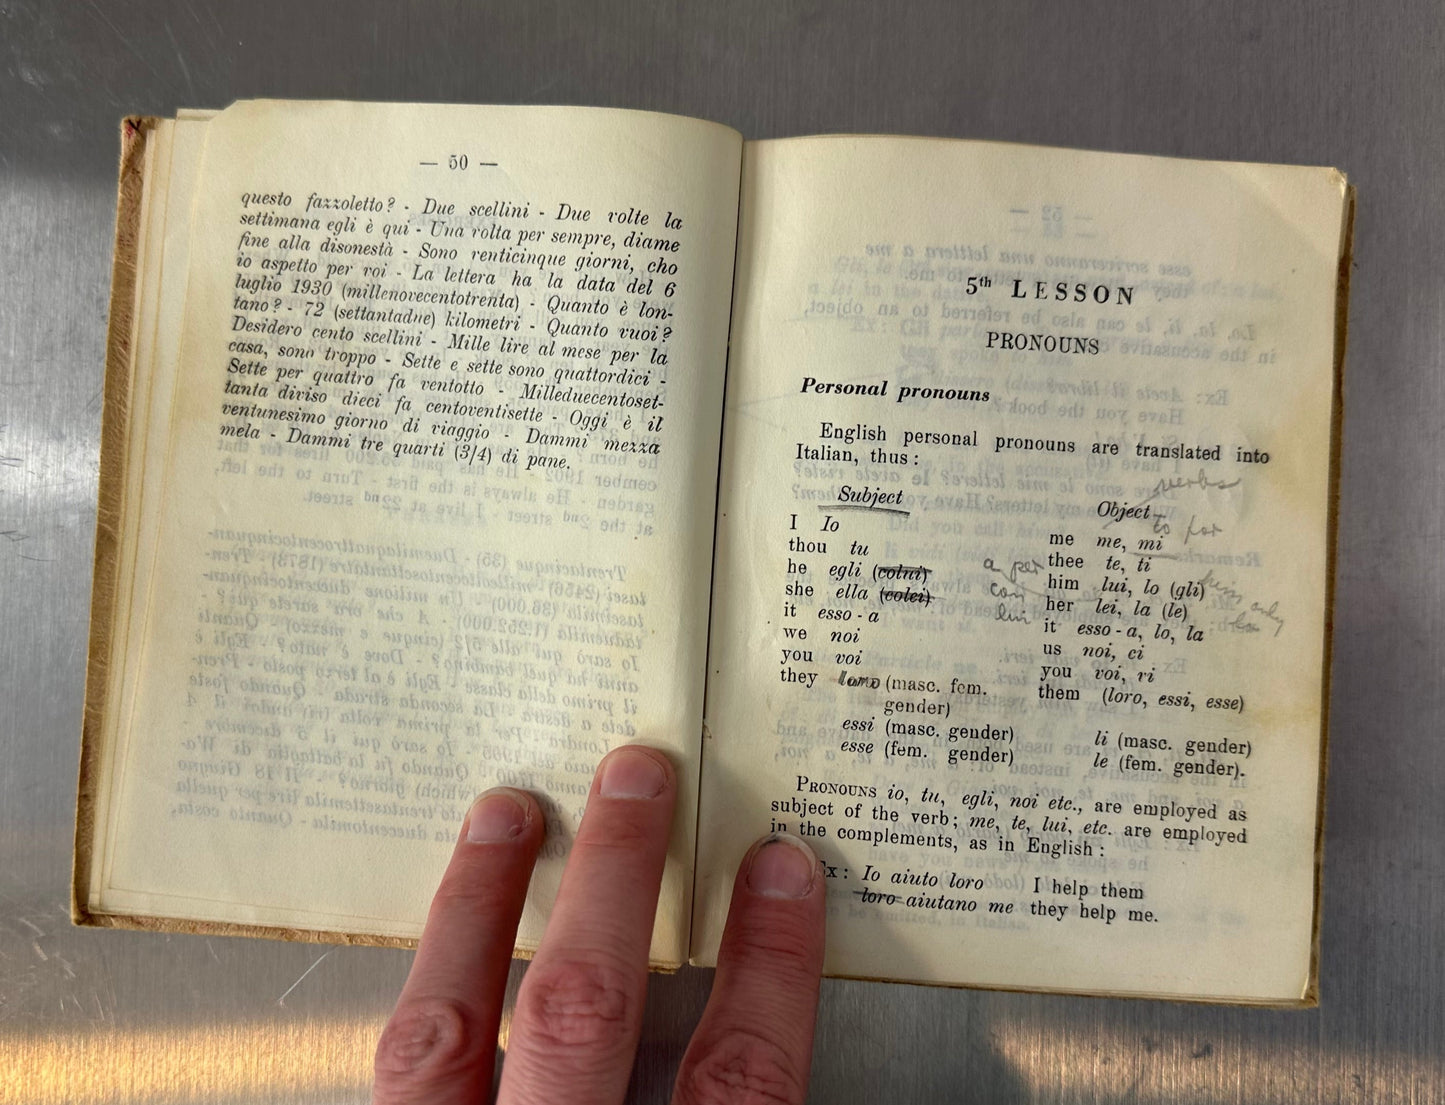 — 50 —
questo fazzoletto? - Due scellini - Due volte la
settimana egli è qui - Una volta per sempre, diame
fine alla disonestà - Sono venticinque giorni, cho
io aspetto per voi - La lettera ha la data del 6
luglio 1930 (millenovecentotrenta) - Quanto è lon-
tano? - 72 (settantadue) kilometri - Quanto vuoi?
Desidero cento scellini - Mille lire al mese per la
casa, sono troppo - Sette e sette sono quattordici -
Sette per quattro fa ventotto - Milleduecentoset-
tanta diviso dieci fa centoventisette - Oggi è il
ventunesimo giorno di viaggio - Dammi mezza
mela - Dammi tre quarti (3/4) di pane.
5th LESSON
PRONOUNS
Personal pronouns
English personal pronouns are translated into
Italian, thus :
verbs
Subject
Object
to for
I Io
me me, mi
thou tu
thee te, ti
he egli (colui)
a per
him lui, lo (gli)
she ella (colei)
con
her lei, la (le)
only
it esso - a
it esso - a, lo, la
we noi
us noi, ci
you voi
you voi, vi
they loro (masc. fem.
gender)
them (loro, essi, esse)
essi (masc. gender)
li (masc. gender)
esse (fem. gender)
le (fem. gender).
PRONOUNS io, tu, egli, noi etc., are employed as
subject of the verb; me, te, lui, etc. are employed
in the complements, as in English :
Ex : Io aiuto loro I help them
loro aiutano me they help me.